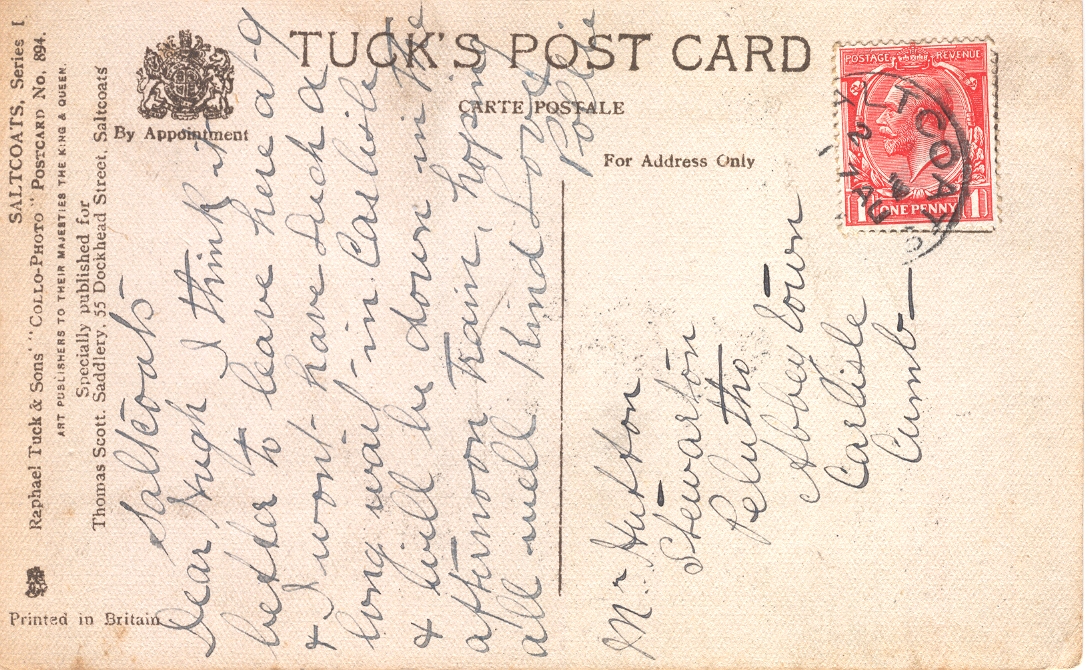 TUCK'S POST CARD
CARTE POSTALE
By Appointment
For Address Only
POSTAGE REVENUE
ONE PENNY
SALTCOATS
SALTCOATS, Series I
Raphael Tuck & Sons' "COLLO-PHOTO" POSTCARD No. 894.
ART PUBLISHERS TO THEIR MAJESTIES THE KING & QUEEN.
Specially published for
Thomas Scott, Saddlery, 55 Dockhead Street, Saltcoats
Printed in Britain
Saltcoats
Dear Hugh I think it
better to leave here at 9
& I wont have such a
long wait in Carlisle
& will be down in the
afternoon train, hoping
all well Kind Love
Polly
Mr Hutton
Stewarton
Pelutho
Abbey Town
Carlisle
Cumb